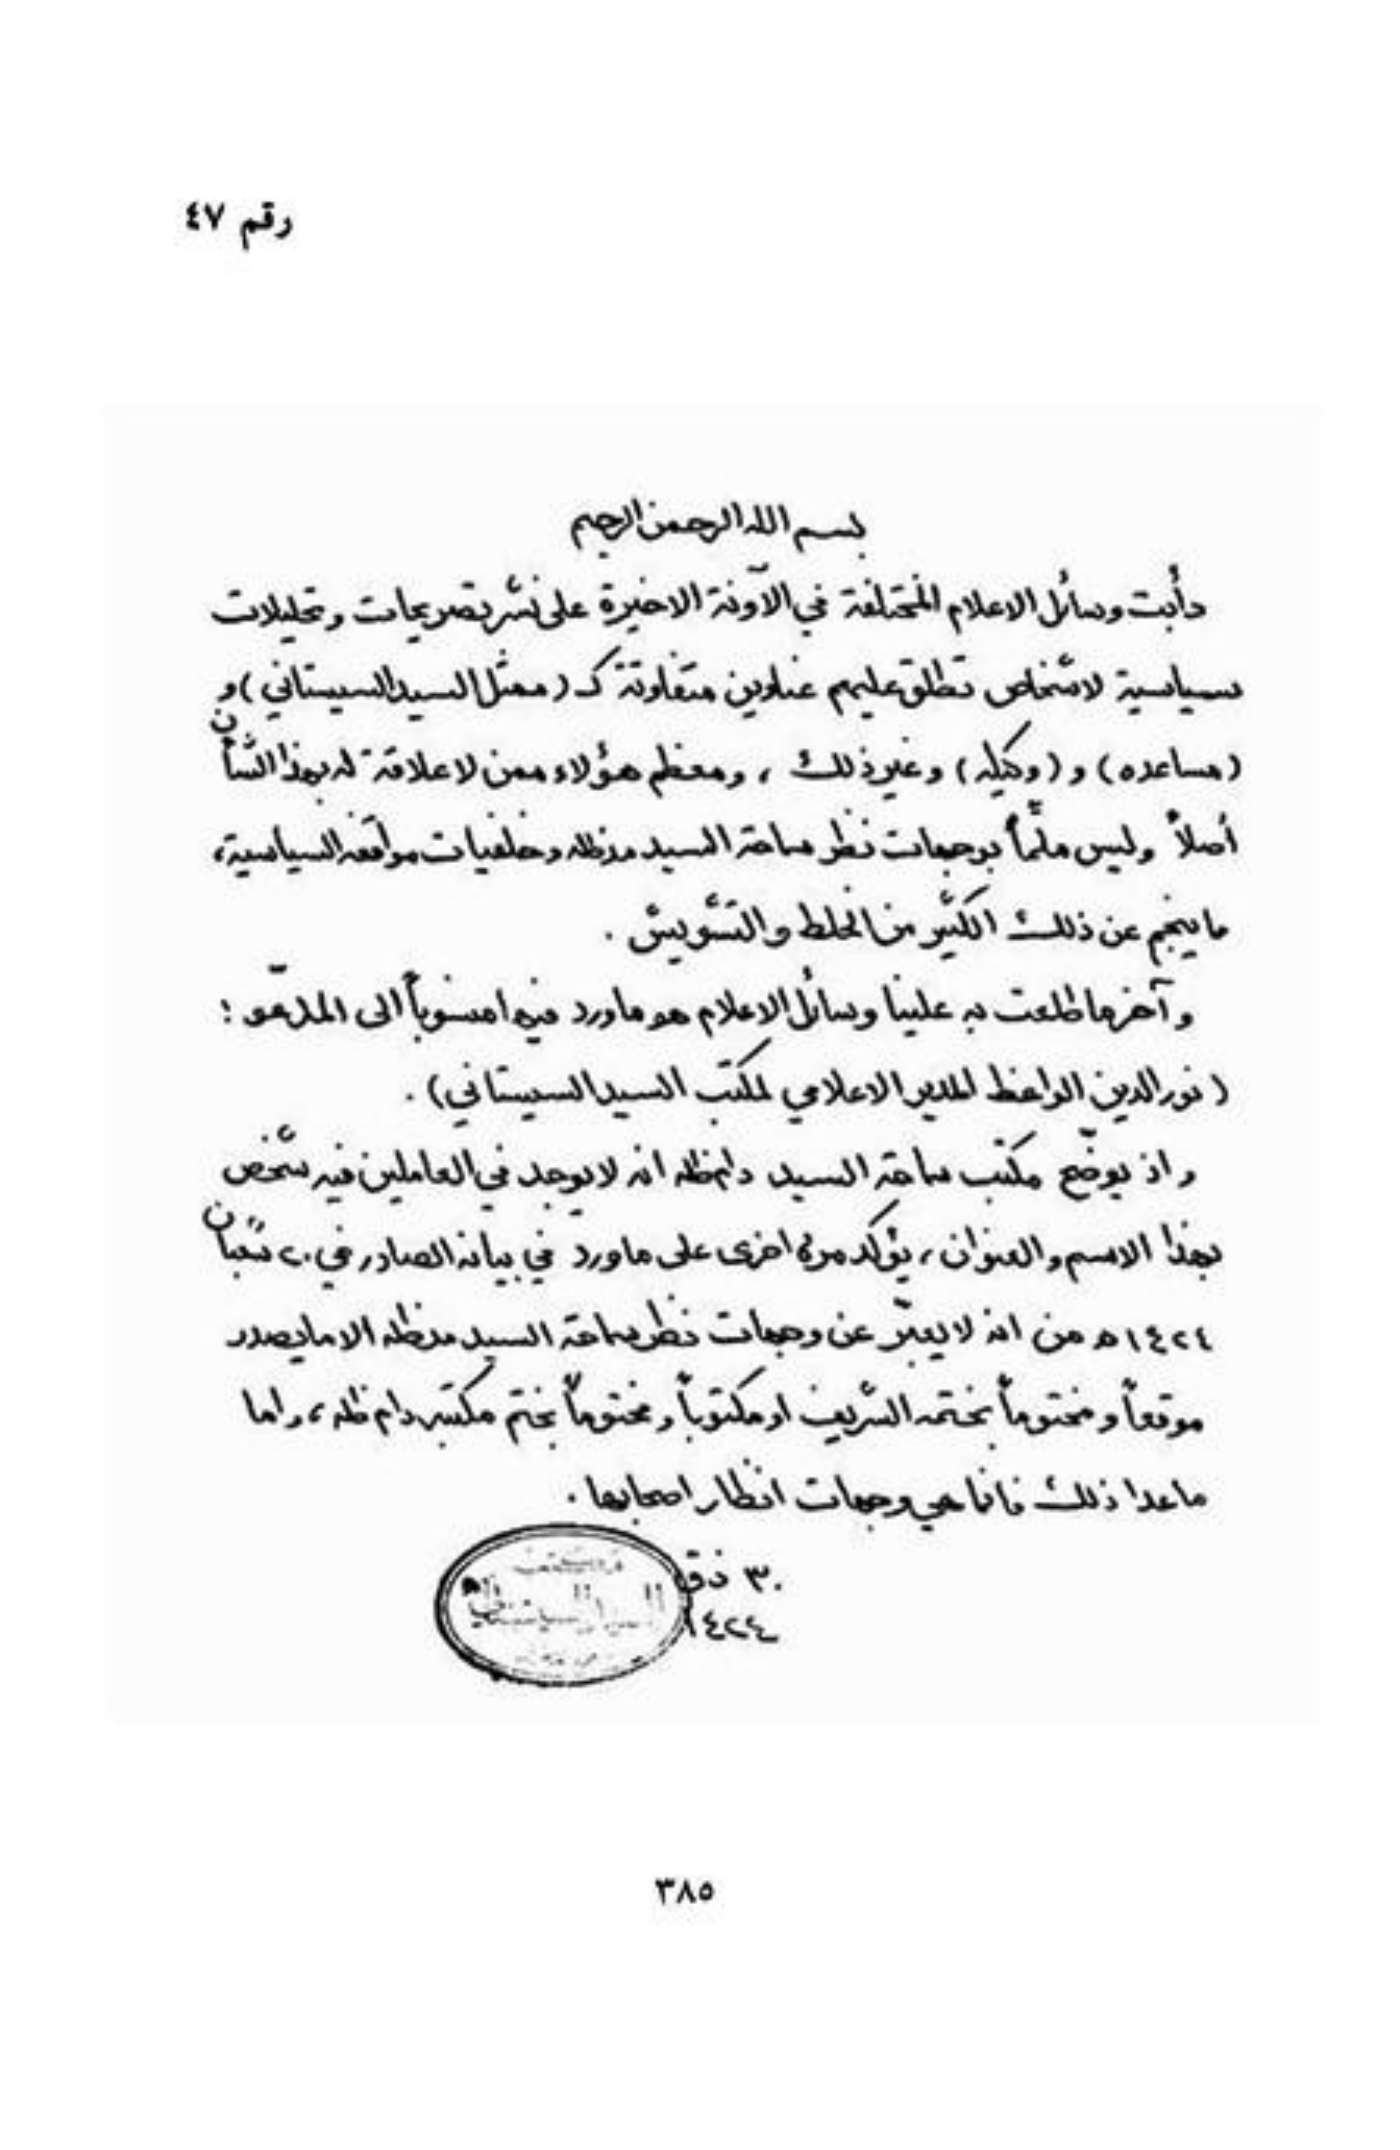 رقم ٤٧
بسم الله الرحمن الرحيم
دأبت وسائل الاعلام المختلفة في الآونة الاخيرة على نشر تصريحات وتحليلات
سياسية لاشخاص تطلق عليهم عناوين متفاوتة كـ (ممثل السيد السيستاني) و
(مساعده) و (وكيله) وغير ذلك ، ومعظم هؤلاء ممن لا علاقة له بهذا الشأن
أصلاً وليس ملمّاً بوجهات نظر سماحة السيد مدظله وخلفيات مواقفه السياسية،
ما ينجم عن ذلك الكثير من الخلط والتشويش .
وآخر ما طلعت به علينا وسائل الاعلام هو ما ورد فيها منسوباً الى المدعو :
( نور الدين الواعظ المدير الاعلامي لمكتب السيد السيستاني ) .
واذ يوضّح مكتب سماحة السيد دام ظله انه لا يوجد في العاملين فيه شخص
بهذا الاسم والعنوان ، يؤكد مرة اخرى على ما ورد في بيانه الصادر في ٢٠ شعبان
١٤٢٤ ه من انه لا يعبّر عن وجهات نظر سماحة السيد مدظله الا ما يصدر
موقعاً ومختوماً بختمه الشريف او مكتوباً ومختوماً بختم مكتبه دام ظله ، واما
ما عدا ذلك فانما هي وجهات انظار اصحابها .
٣٠ ذق
١٤٢٤
السيد السيستاني
٣٨٥